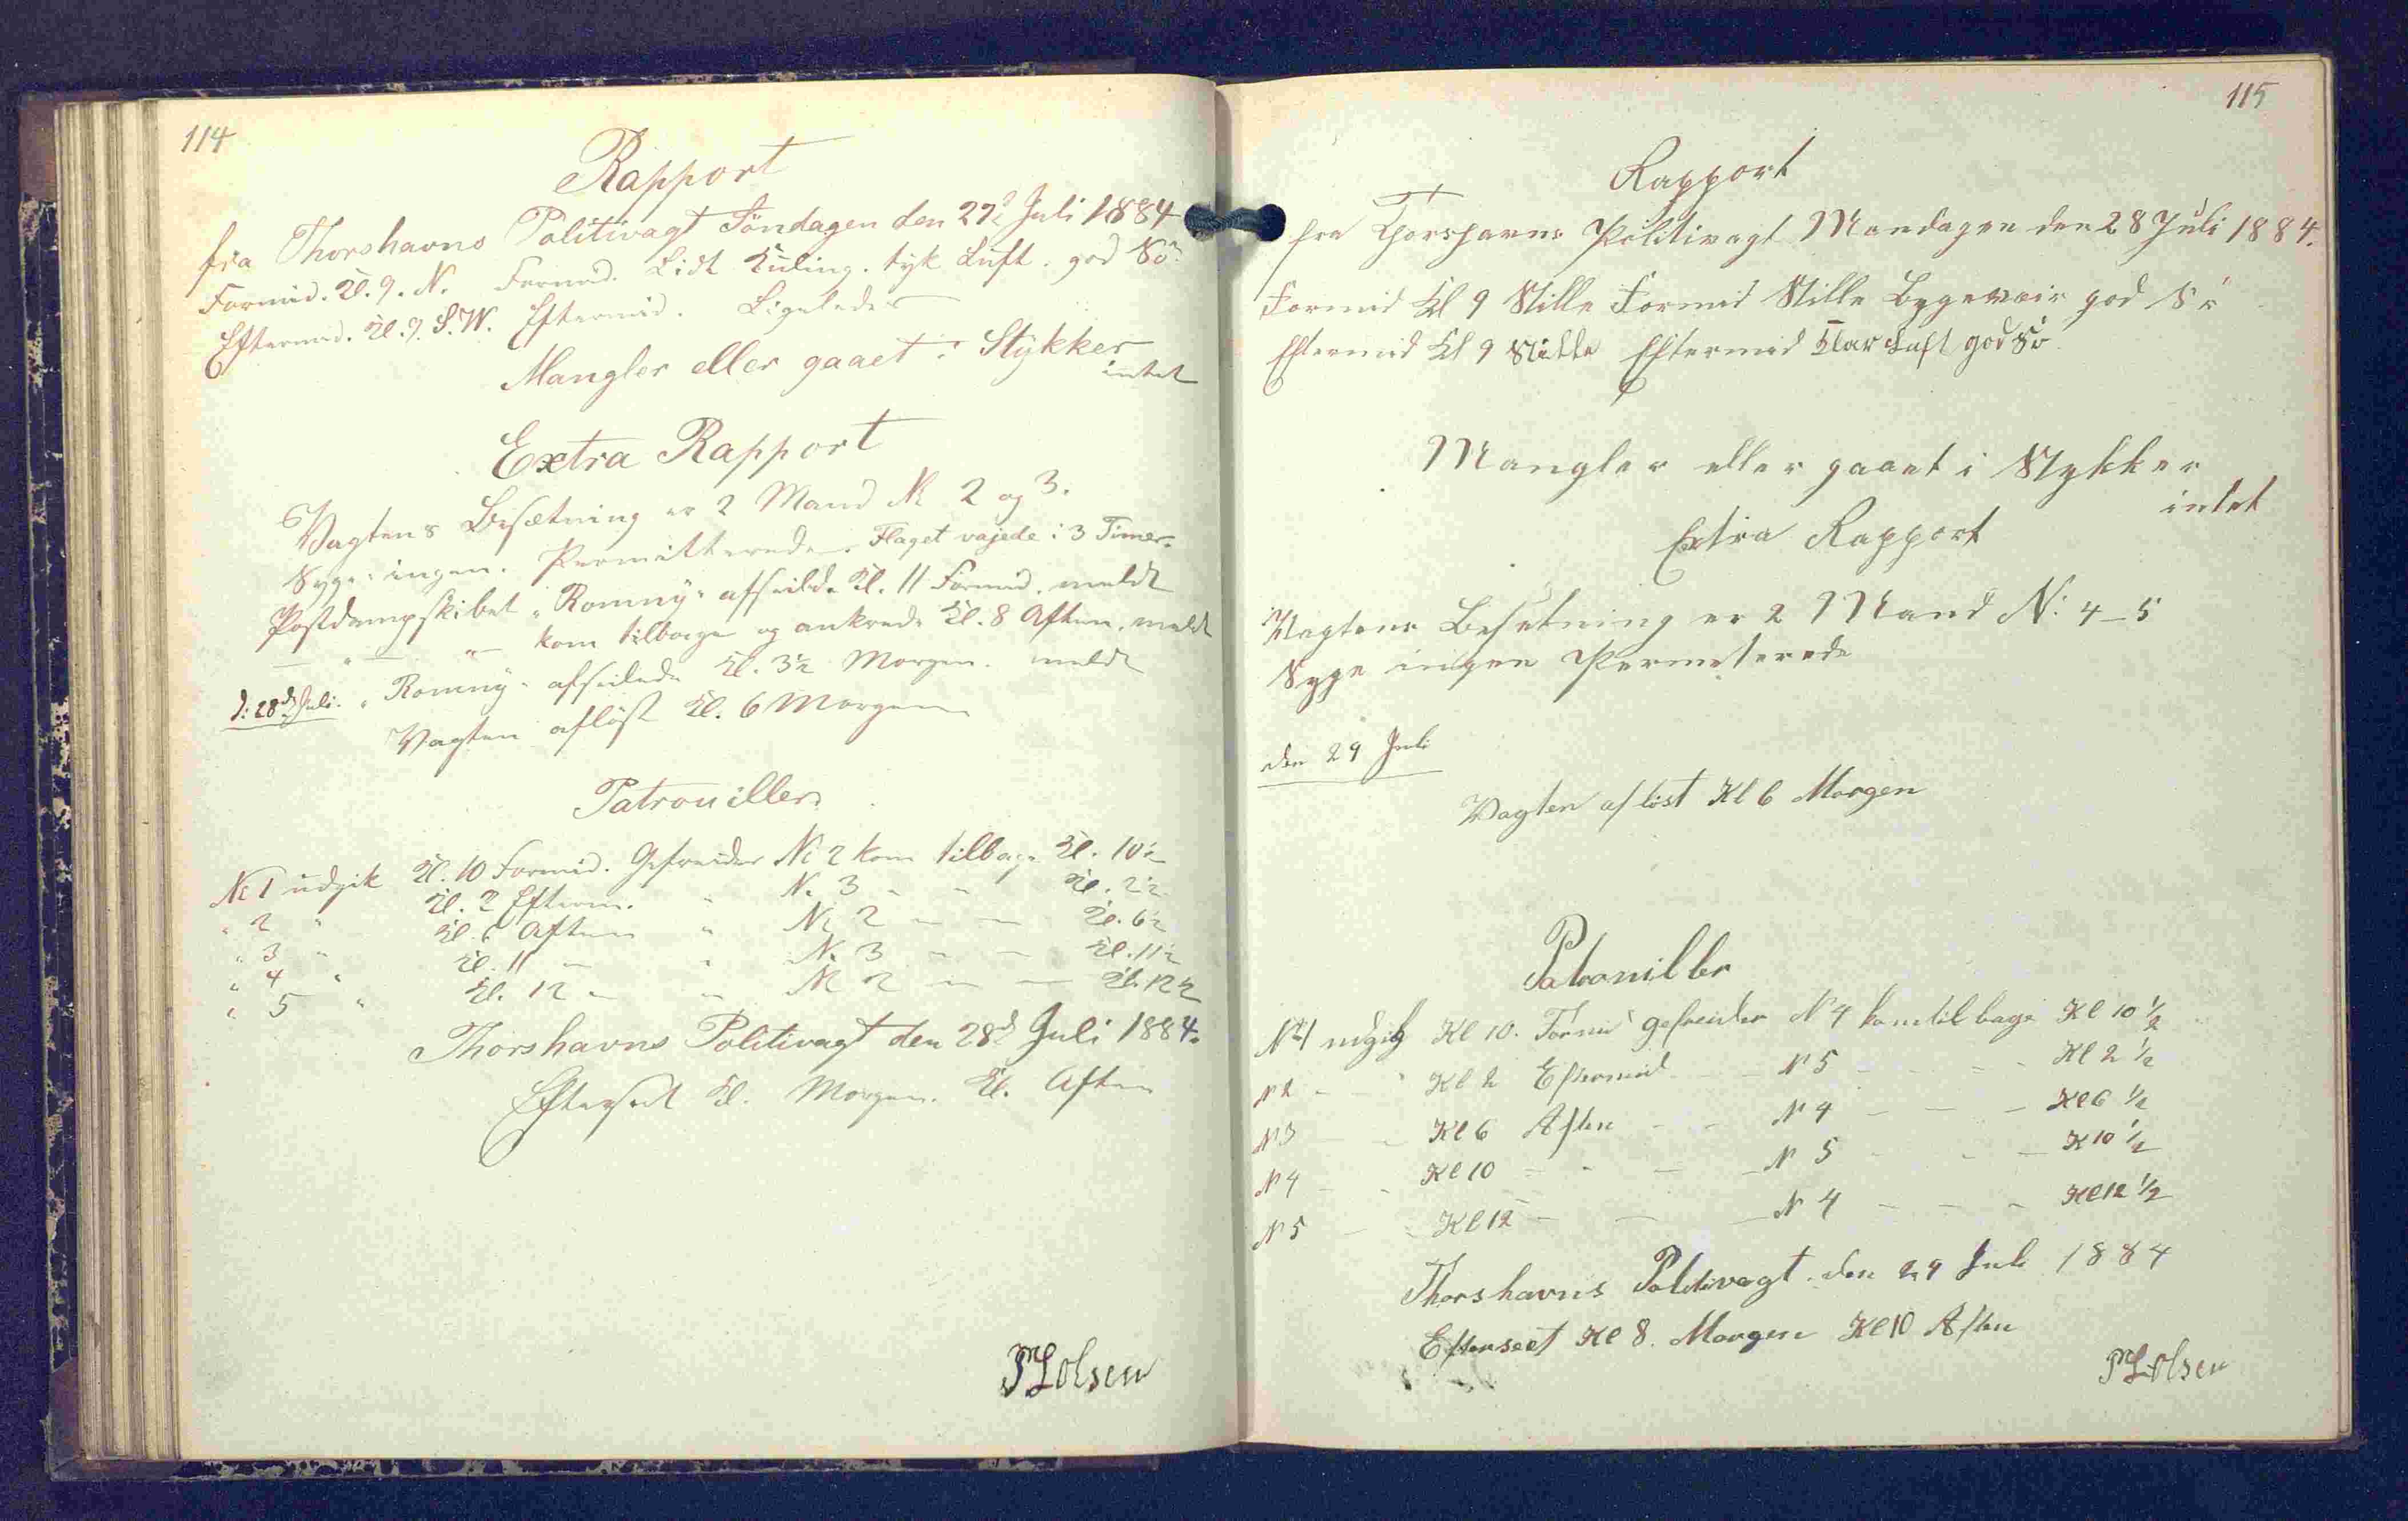 114
Rapport
fra Thorshavns Politivagt Søndagen den 27d Juli 1884
Formid. Kl. 9. N. Formid. Lidt Kuling. tyk Luft. god Sø
Eftermid. Kl. 9. S.W. Eftermid. Ligeledes
Mangler eller gaaet i Stykker
intet
Extra Rapport
Vagtens Besætning er 2 Mand No 2 og 3.
Syge: ingen. Permitterede. Flaget vajede i 3 Timer.
Postdampskibet "Romny" afseilede Kl. 11 Formid. meldt
— " — " — kom tilbage og ankrede Kl. 8 Aften. meldt
d: 28d Juli. "Romny" afseilede Kl. 3½ Morgen. meldt
Vagten afløst Kl. 6 Morgen
Patrouiller
No 1 udgik Kl. 10 Formid. Gefreider No 2 kom tilbage Kl. 10½
" 2 " Kl. 2 Efterm. " No 3 - - Kl. 2½
" 3 " Kl. 6 Aften " No 2 - - Kl. 6½
" 4 " Kl. 11 - " No 3 - - Kl. 11½
" 5 " Kl. 12 - " No 2 - - Kl. 12½
Thorshavns Politivagt den 28d Juli 1884.
Efterseet Kl. Morgen. Kl. Aften
PLOlsen
115
Rapport
fra Thorshavns Politivagt Mandagen den 28 Juli 1884.
Formid Kl 9 Stille Formid Stille Bygeveir god Sø
Eftermid Kl 9 Stille Eftermid Klar Luft god Sø
Mangler eller gaaet i Stykker
intet
Extra Rapport
Vagtens Besetning er 2 Mand N: 4-5
Syge ingen Permeterede
den 29 Juli
Vagten afløst Kl 6 Morgen
Patrouiller
No 1 udgik Kl 10. Formid gefreider N 4 kom tilbage Kl 10 ½
N 2 - - Kl 2 Eftermid - - N 5 - - - Kl 2 ½
N 3 - - Kl 6 Aften - - N 4 - - - Kl 6 ½
N 4 - - Kl 10 - - - N 5 - - - K 10 ½
N 5 - - Kl 12 - - - N 4 - - - Kl 12 ½
Thorshavns Politivagt. den 29 Juli 1884
Efterseet Kl 8. Morgen Kl 10 Aften
PLOlsen